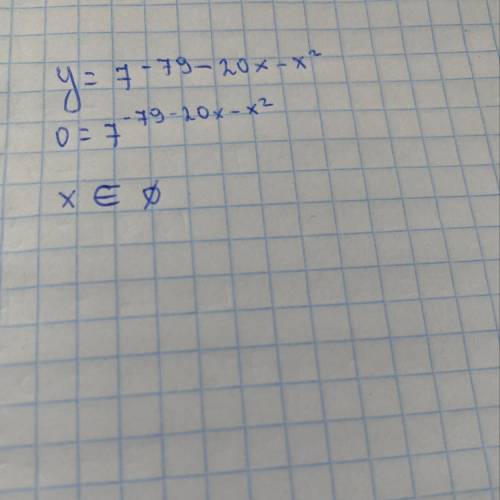 y = 7^{-79-20x-x^2}
0 = 7^{-79-20x-x^2}
x ∈ ∅